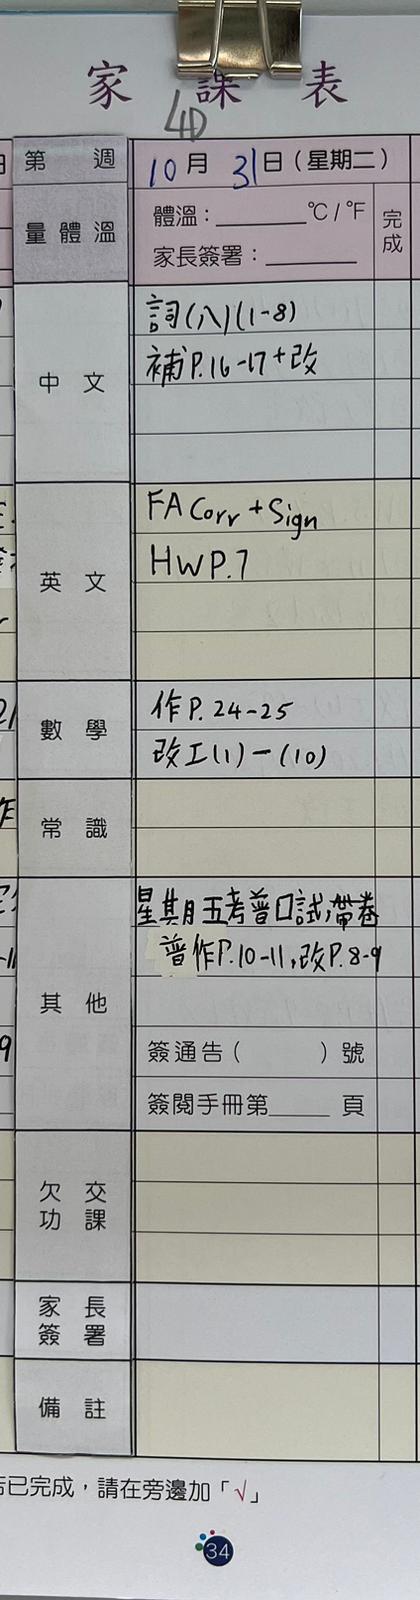 家課表
4D
第 週
10月31日（星期二）
量體溫
體溫：______℃/℉
完成
家長簽署：______
中文
詞(八)(1-8)
補P.16-17+改
英文
FA Corr + Sign
HW P.7
數學
作P.24-25
改工(1)-(10)
常識
其他
星期五考普口試,帶卷
普作P.10-11,改P.8-9
簽通告（ ）號
簽閱手冊第____頁
欠交功課
家長簽署
備註
已完成，請在旁邊加「√」
34